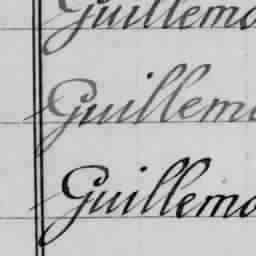 Guillemo
Guillem
Guillemo